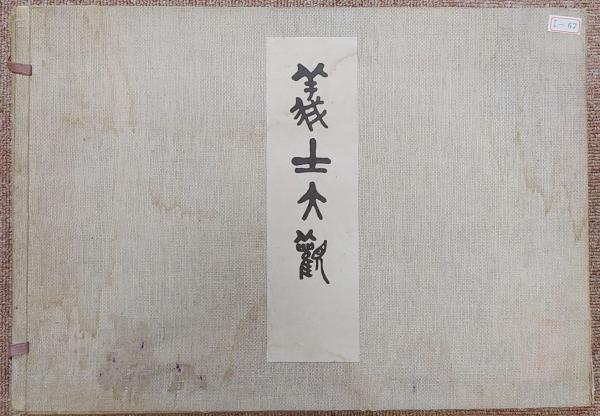 義士大觀
I-67